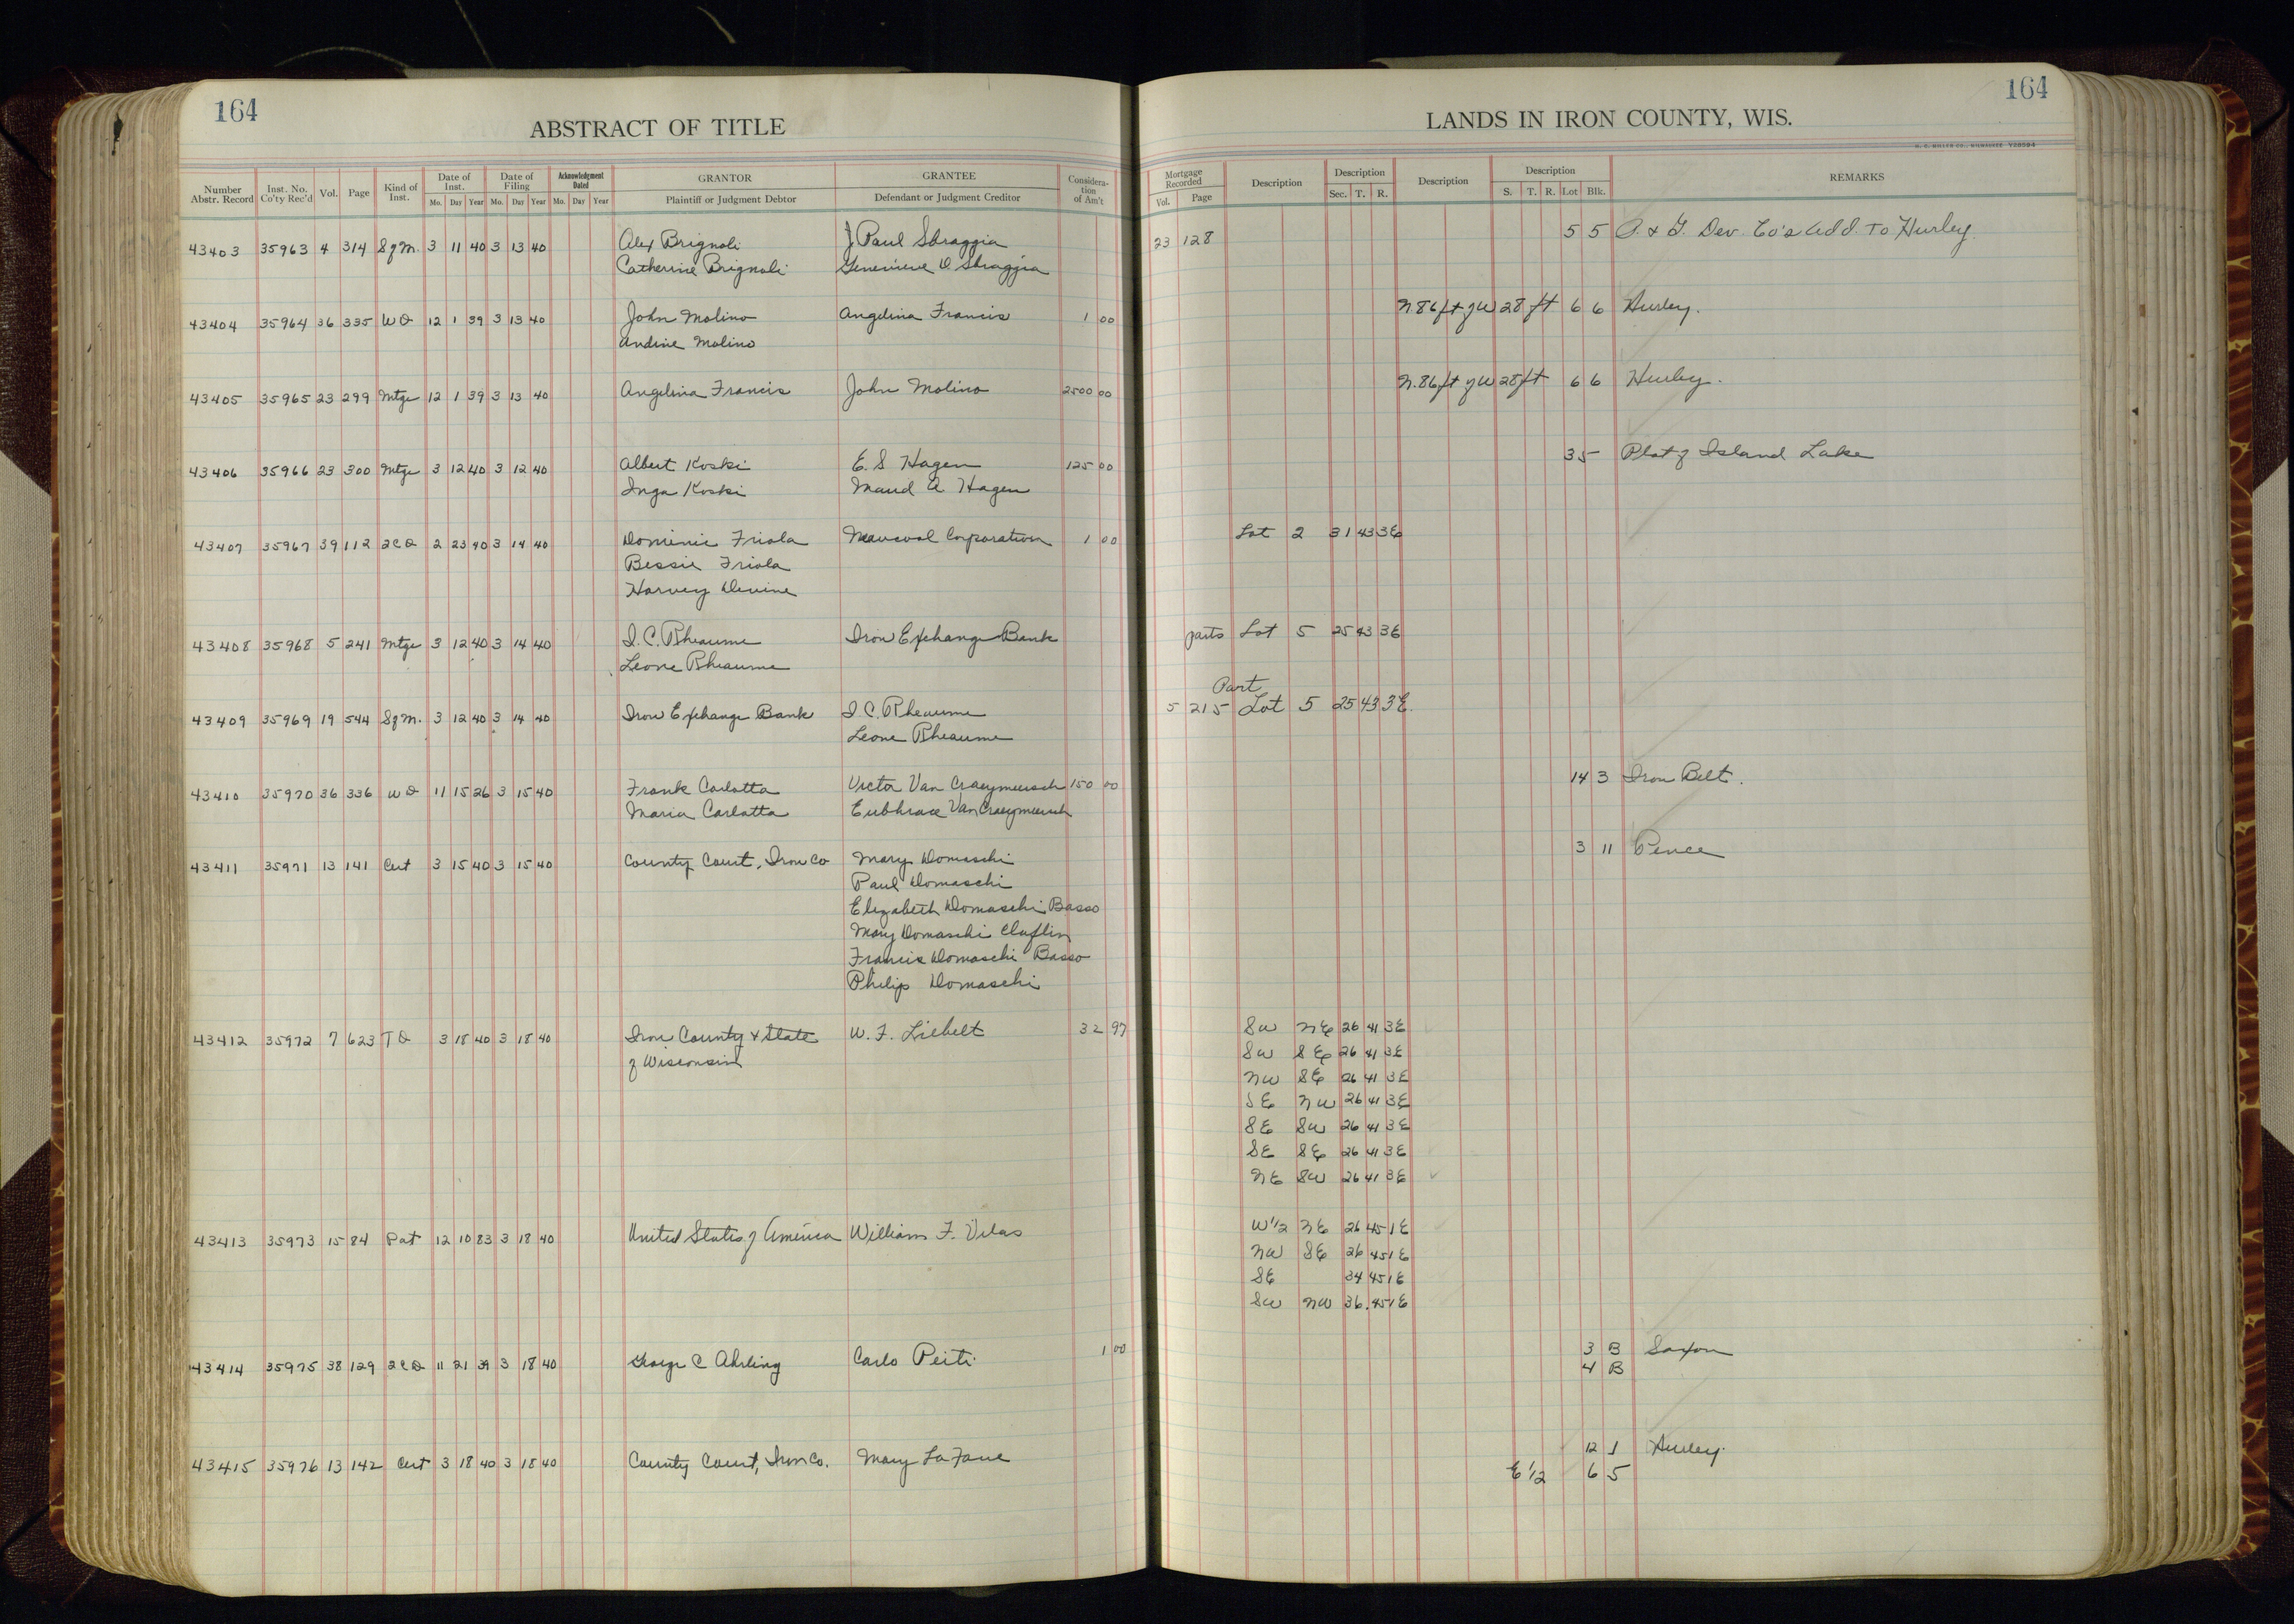 164
ABSTRACT OF TITLE
Number Abstr. Record
Inst. No. Co'ty Rec'd
Vol.
Page
Kind of Inst.
Date of Inst.
Mo. Day Year
Date of Filing
Mo. Day Year
Acknowledgment Dated
Mo. Day Year
GRANTOR
Plaintiff or Judgment Debtor
GRANTEE
Defendant or Judgment Creditor
Considera-tion of Am't
43403 35963 4 314 SfM. 3 11 40 3 13 40 Alex Brignoli J Paul Sbraggia
Catherine Brignoli Genevieve D Sbraggia
43404 35964 36 335 WD 12 1 39 3 13 40 John Molino Angelina Francis 1 00
Andine Molino
43405 35965 23 299 Mtge 12 1 39 3 13 40 Angelina Francis John Molino 2500 00
43406 35966 23 300 Mtge 3 12 40 3 12 40 Albert Koski E. S Hagen 125 00
Inga Koski Maud A Hagen
43407 35967 39 112 2CD 2 23 40 3 14 40 Dominic Friola Corporation 1 00
Bessie Friola
Harvey Devine
43408 35968 5 241 Mtge 3 12 40 3 14 40 I. C. Rheaume Iron Exchange Bank
Leone Rheaume
43409 35969 19 544 SfM. 3 12 40 3 14 40 Iron Exchange Bank I C. Rheaume
Leone Rheaume
43410 35970 36 336 WD 11 15 26 3 15 40 Frank Carlotta Victor Van Craeymeersch 150 00
Maria Carlotta Van Craeymeersch
43411 35971 13 141 Cert 3 15 40 3 15 40 County Court, Iron Co Mary Domaschi
Paul Domaschi
Elizabeth Domaschi Basso
Mary Domaschi Claflin
Francis Domaschi Basso
Philip Domaschi
43412 35972 7 623 TD 3 18 40 3 18 40 Iron County & State W. F. Liebelt 32 97
of Wisconsin
43413 35973 15 84 Pat 12 10 83 3 18 40 United States of America William F. Vilas
43414 35975 38 129 2CD 11 21 39 3 18 40 George C Ahrling Carlo Peiti 1 00
43415 35976 13 142 Cert 3 18 40 3 18 40 County Court, Iron Co. Mary LaFave
164
LANDS IN IRON COUNTY, WIS.
H. C. MILLER CO., MILWAUKEE
Mortgage Recorded
Vol. Page
Description
Description
Sec. T. R.
Description
Description
S. T. R. Lot Blk.
REMARKS
23 128 5 5 Dev. Co's Add. To Hurley
N. 86 ft of W 28 ft 6 6 Hurley.
N. 86 ft of W 28 ft 6 6 Hurley.
35 Plat of Island Lake
Lot 2 31 43 3E
parts Lot 5 25 43 3E
Part
5 215 Lot 5 25 43 3E.
14 3 Iron Belt.
3 11 Pence
SW NE 26 41 3E
SW SE 26 41 3E
NW SE 26 41 3E
SE NW 26 41 3E
SE SW 26 41 3E
SE SE 26 41 3E
NE SW 26 41 3E ✓
W 1/2 NE 26 45 1E
NW SE 26 45 1E
SE 34 45 1E
SW NW 36 45 1E
3 B Saxon
4 B
12 1 Hurley.
E 1/2 6 5